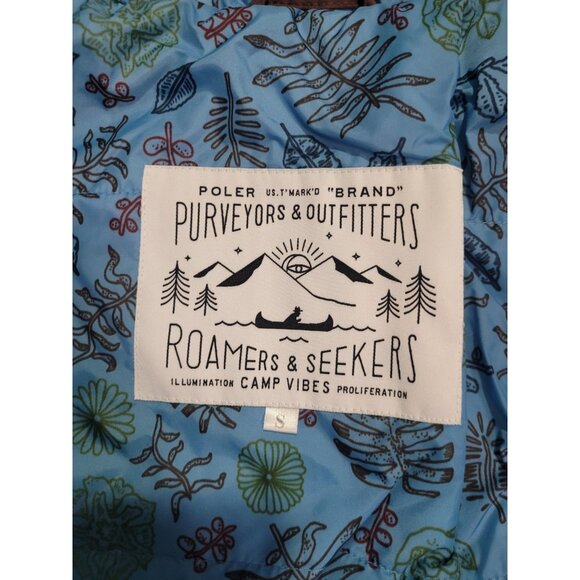 POLER US.T'MARK'D "BRAND"
PURVEYORS & OUTFITTERS
ROAMERS & SEEKERS
ILLUMINATION CAMP VIBES PROLIFERATION
S